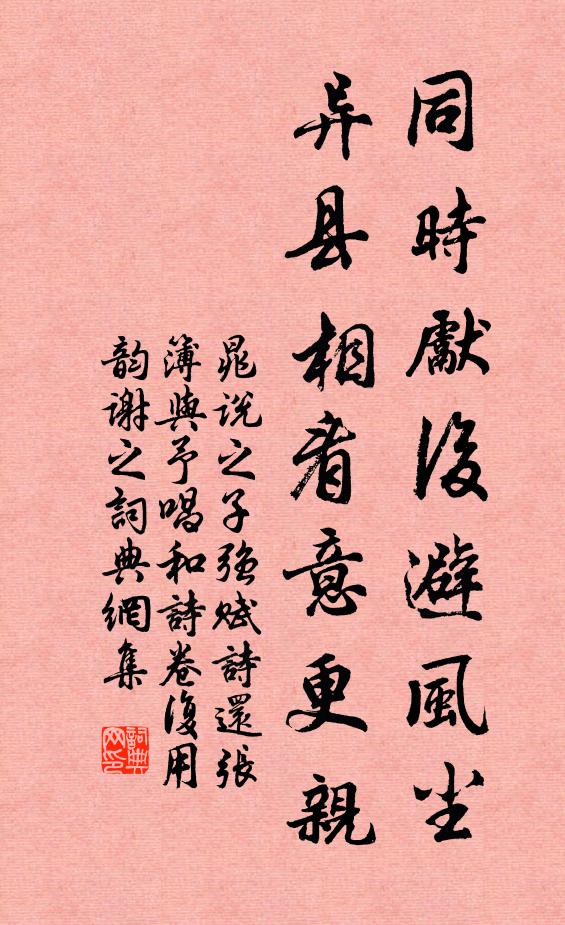 同時獻後避風尘
异县相看意更親
晁说之子強赋詩還張
簿與予唱和詩卷復用
韵谢之詞典網集
詞典网印